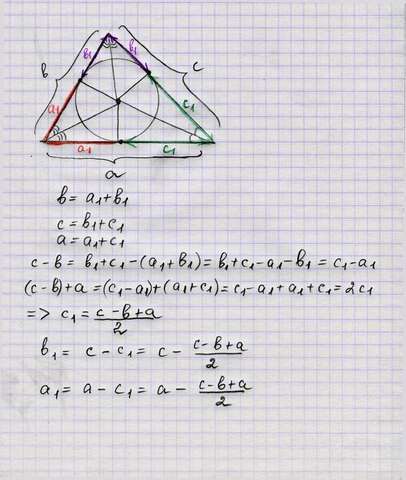 в в₁ в₁ c
a₁ c₁
a₁ c₁
a
в = a₁+в₁
c = в₁+c₁
a = a₁+c₁
c-в = в₁+c₁-(a₁+в₁) = в₁+c₁-a₁-в₁ = c₁-a₁
(c-в)+a = (c₁-a₁)+(a₁+c₁) = c₁-a₁+a₁+c₁ = 2c₁
=> c₁ = (c-в+a)/2
в₁ = c - c₁ = c - (c-в+a)/2
a₁ = a - c₁ = a - (c-в+a)/2